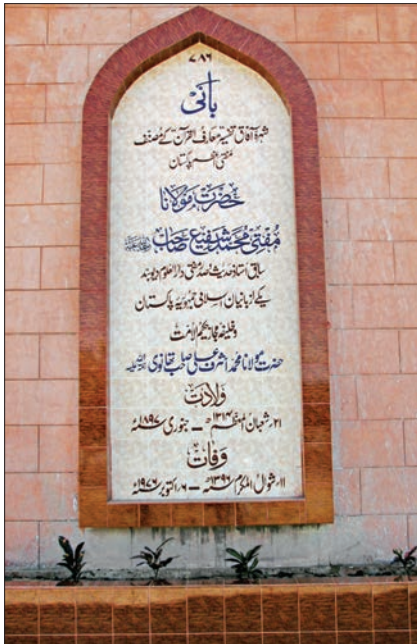 ۷۸۶
بانی
شہرۂ آفاق تفسیر معارف القرآن کے مصنف
مفتی اعظم پاکستان
حضرت مولانا
مفتی محمد شفیع صاحب
سابق استاذ حدیث و صدر مفتی دارالعلوم دیوبند
یکے از بانیان اسلامی جمہوریہ پاکستان
و خلیفہ مجاز حکیم الامت
حضرت مولانا محمد اشرف علی صاحب تھانوی
ولادت
۲۱؍ شعبان المعظم ۱۳۱۴ھ – جنوری ۱۸۹۷ء
وفات
۱۱؍ شوال المکرم ۱۳۹۶ھ – ۶؍ اکتوبر ۱۹۷۶ء